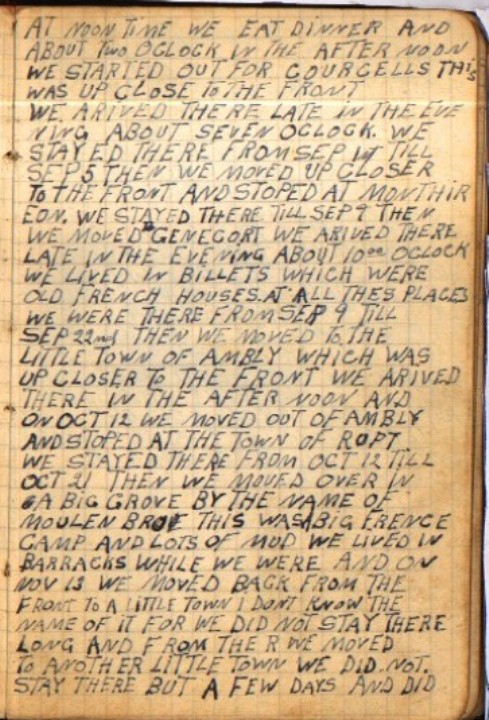 AT NOON TIME WE EAT DINNER AND
ABOUT TWO OCLOCK IN THE AFTER NOON
WE STARTED OUT FOR COURCELLS THIS
WAS UP CLOSE TO THE FRONT
WE ARIVED THERE LATE IN THE EVE
NING ABOUT SEVEN OCLOCK. WE
STAYED THERE FROM SEP 1ST TILL
SEP 5 THEN WE MOVED UP CLOSER
TO THE FRONT AND STOPED AT MONTHIR
EON. WE STAYED THERE TILL SEP 9 THEN
WE MOVED GENECORT WE ARIVED THERE
LATE IN THE EVENING ABOUT 10 00 OCLOCK
WE LIVED IN BILLETS WHICH WERE
OLD FRENCH HOUSES. AT ALL THES PLACES
WE WERE THERE FROM SEP 9 TILL
SEP 22nd THEN WE MOVED TO THE
LITTLE TOWN OF AMBLY WHICH WAS
UP CLOSER TO THE FRONT WE ARIVED
THERE IN THE AFTER NOON AND
ON OCT 12 WE MOVED OUT OF AMBLY
AND STOPED AT THE TOWN OF RUPT
WE STAYED THERE FROM OCT 12 TILL
OCT 21 THEN WE MOVED OVER IN
A BIG GROVE BY THE NAME OF
MOULEN THIS WAS A BIG FRENCE
CAMP AND LOTS OF MUD WE LIVED IN
BARRACKS WHILE WE WERE AND ON
NOV 13 WE MOVED BACK FROM THE
FRONT TO A LITTLE TOWN I DONT KNOW THE
NAME OF IT FOR WE DID NOT STAY THERE
LONG AND FROM THE R WE MOVED
TO ANOTHER LITTLE TOWN WE DID. NOT.
STAY THERE BUT A FEW DAYS AND DID